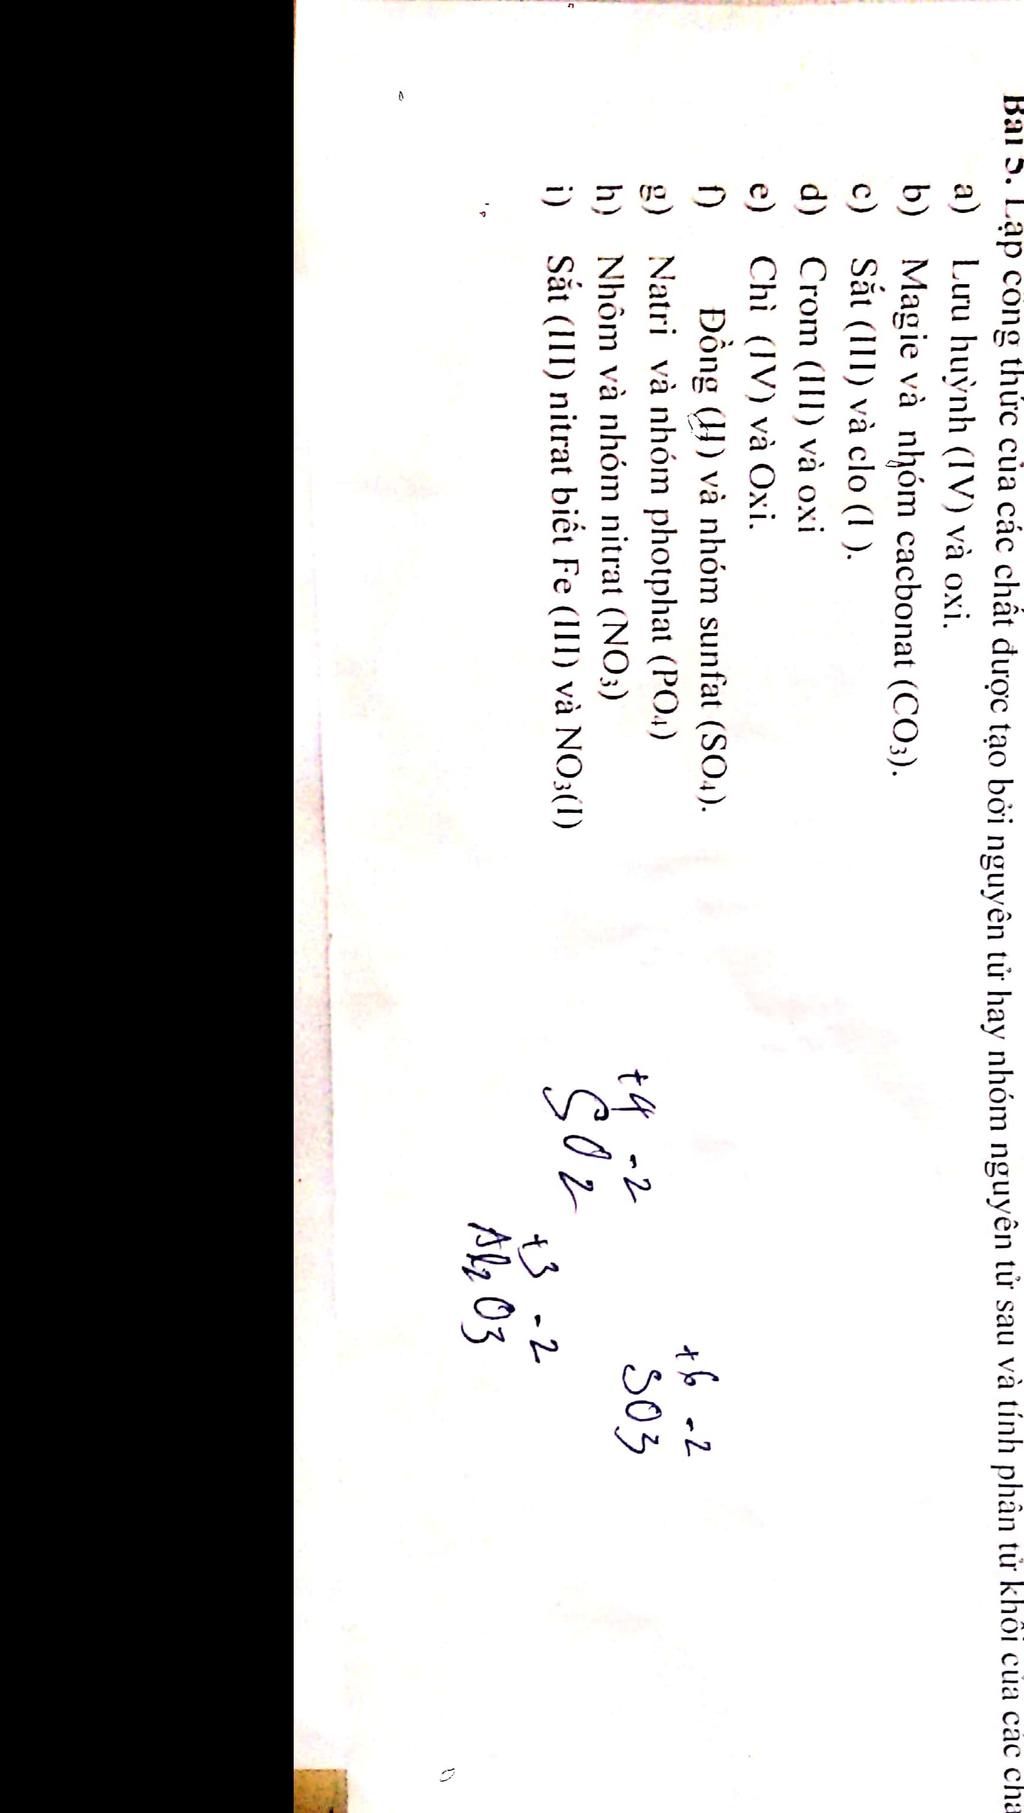 Bài 5. Lập công thức của các chất được tạo bởi nguyên tử hay nhóm nguyên tử sau và tính phân tử khối của các
a) Lưu huỳnh (IV) và oxi.
b) Magie và nhóm cacbonat (CO₃).
c) Sắt (III) và clo (I ).
d) Crom (III) và oxi
e) Chì (IV) và Oxi.
f) Đồng (II) và nhóm sunfat (SO₄).
g) Natri và nhóm photphat (PO₄)
h) Nhôm và nhóm nitrat (NO₃)
i) Sắt (III) nitrat biết Fe (III) và NO₃(I)
+6 -2
SO3
+4 -2
SO2
+3 -2
Al2O3